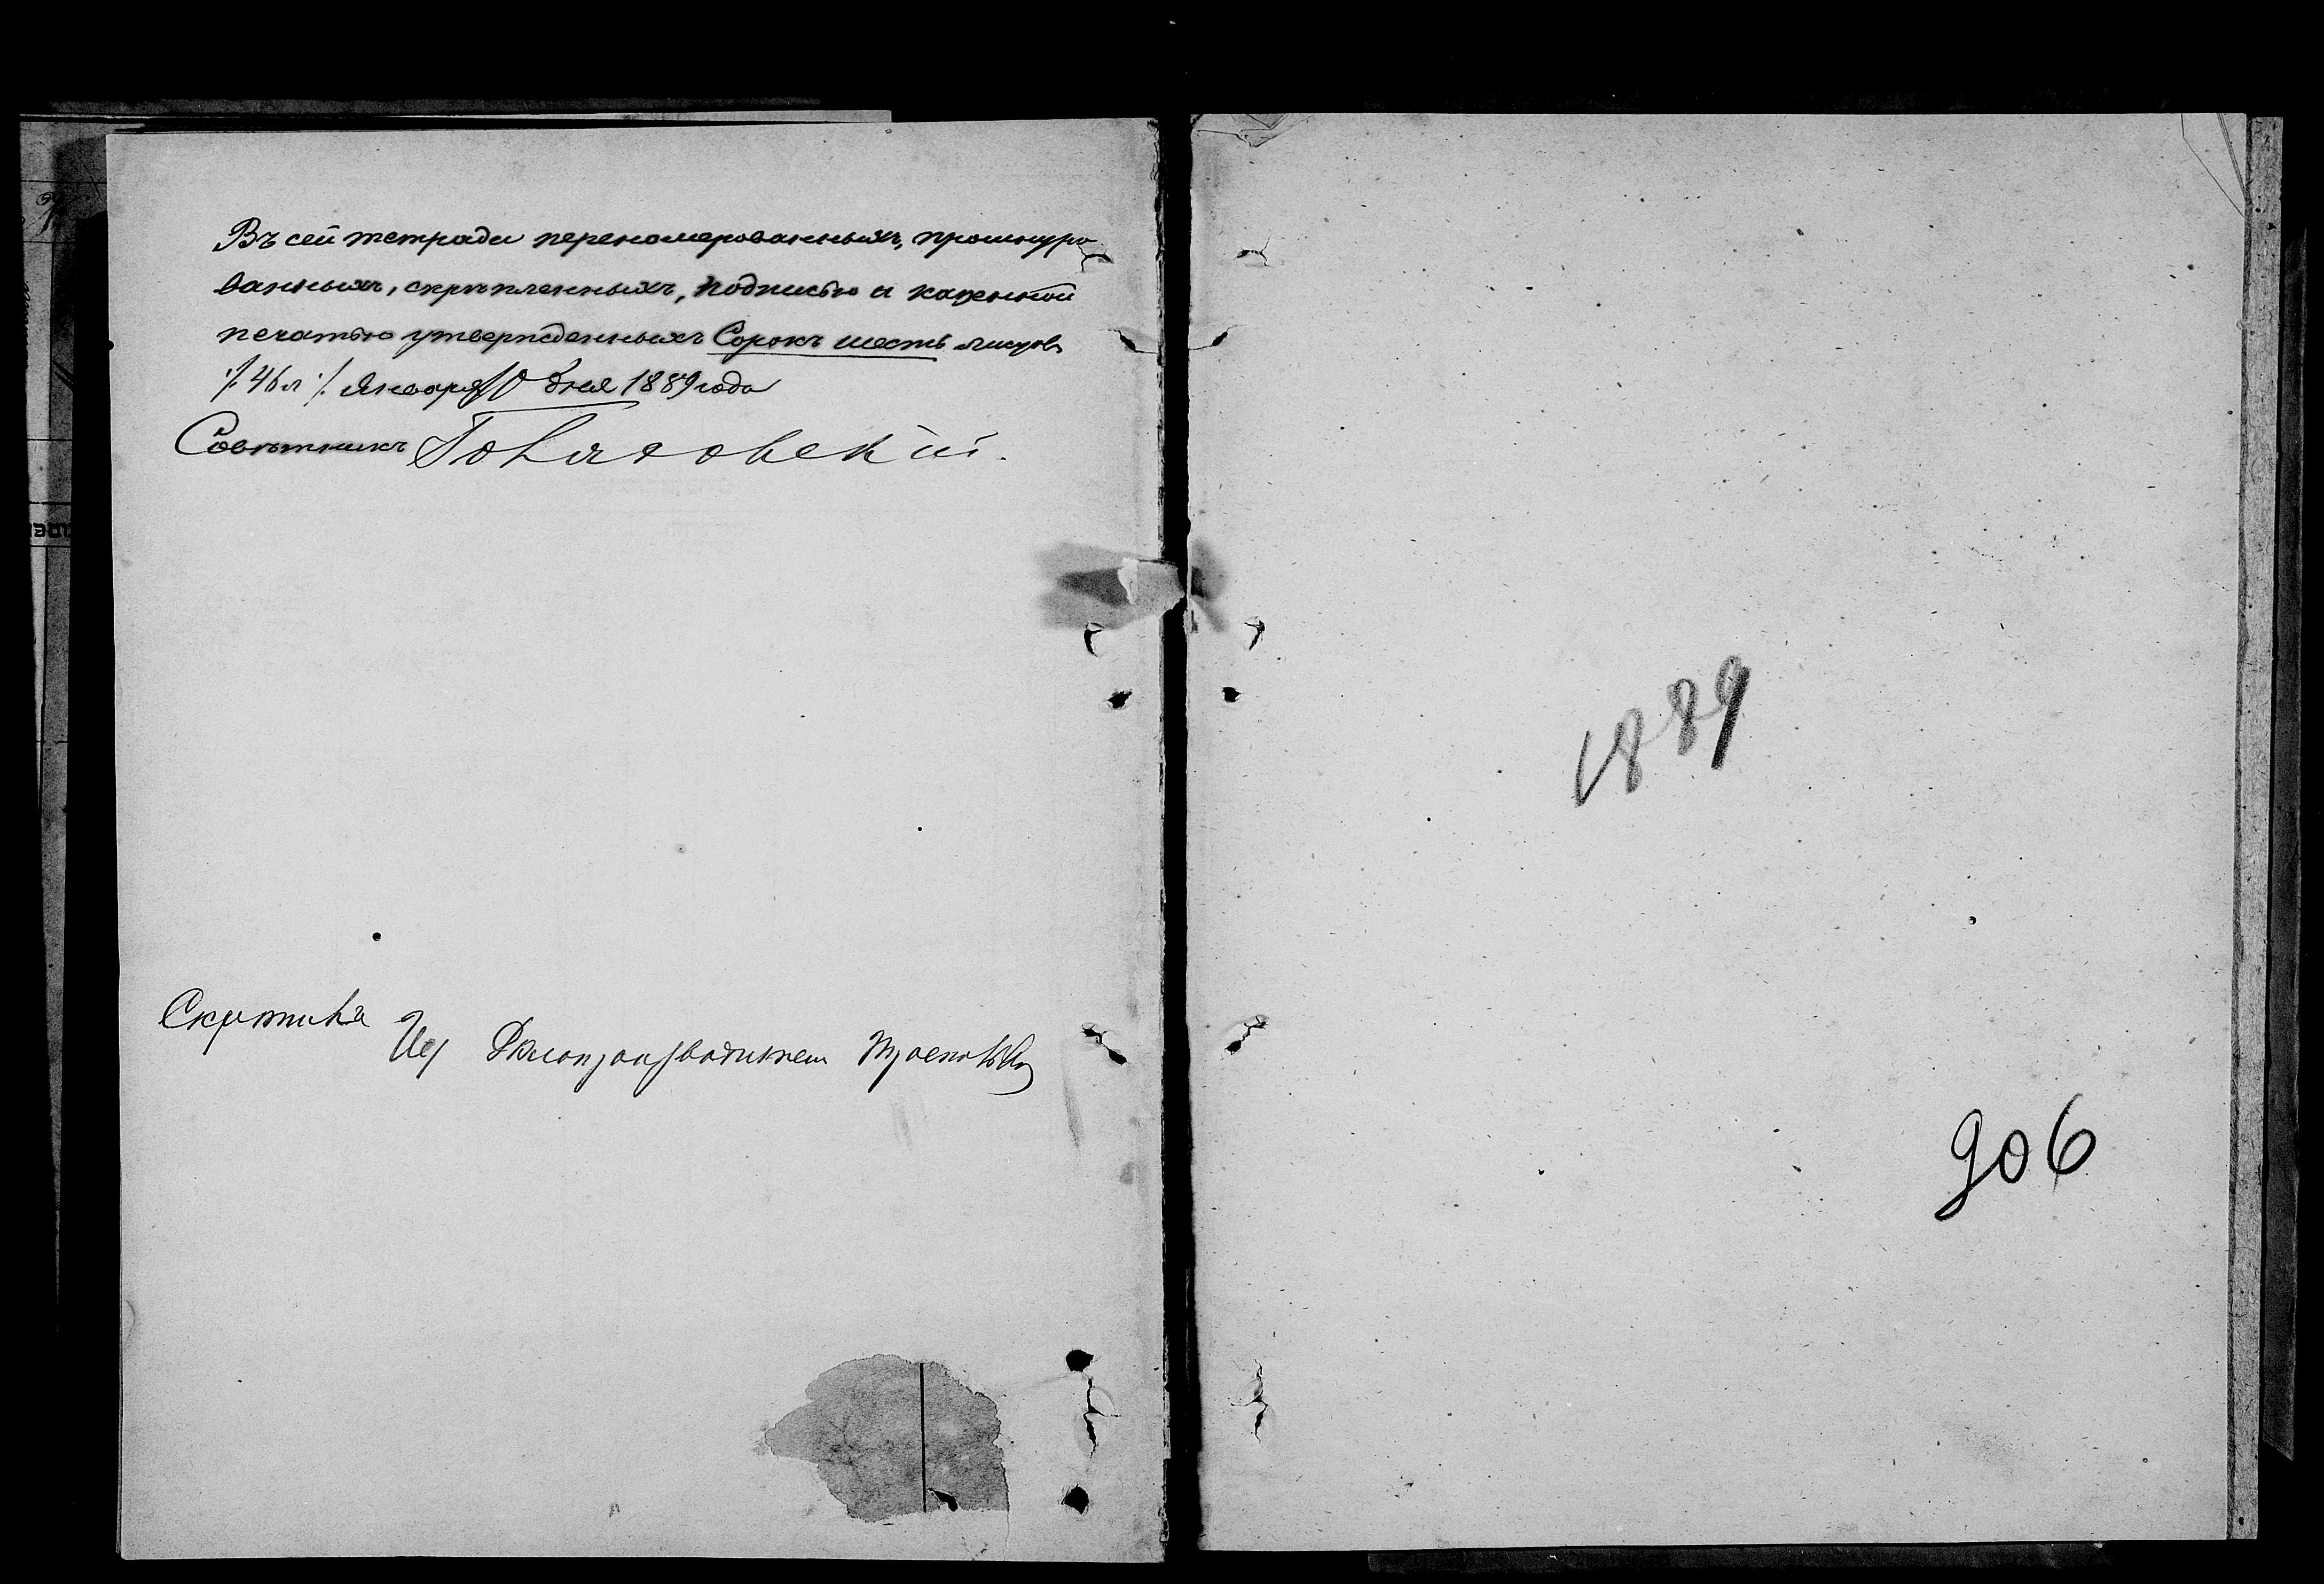 Въ сей тетради перенолмерованныхъ, прошнуро
ванныхъ, скрѣпленныхъ, подписью и казенной
печатью утвержденныхъ Сорокъ шесть листовъ
46 л Января 10 дня 1889 года
Совѣтникъ
Скрѣпилъ
Делопроизводителя
1889
906